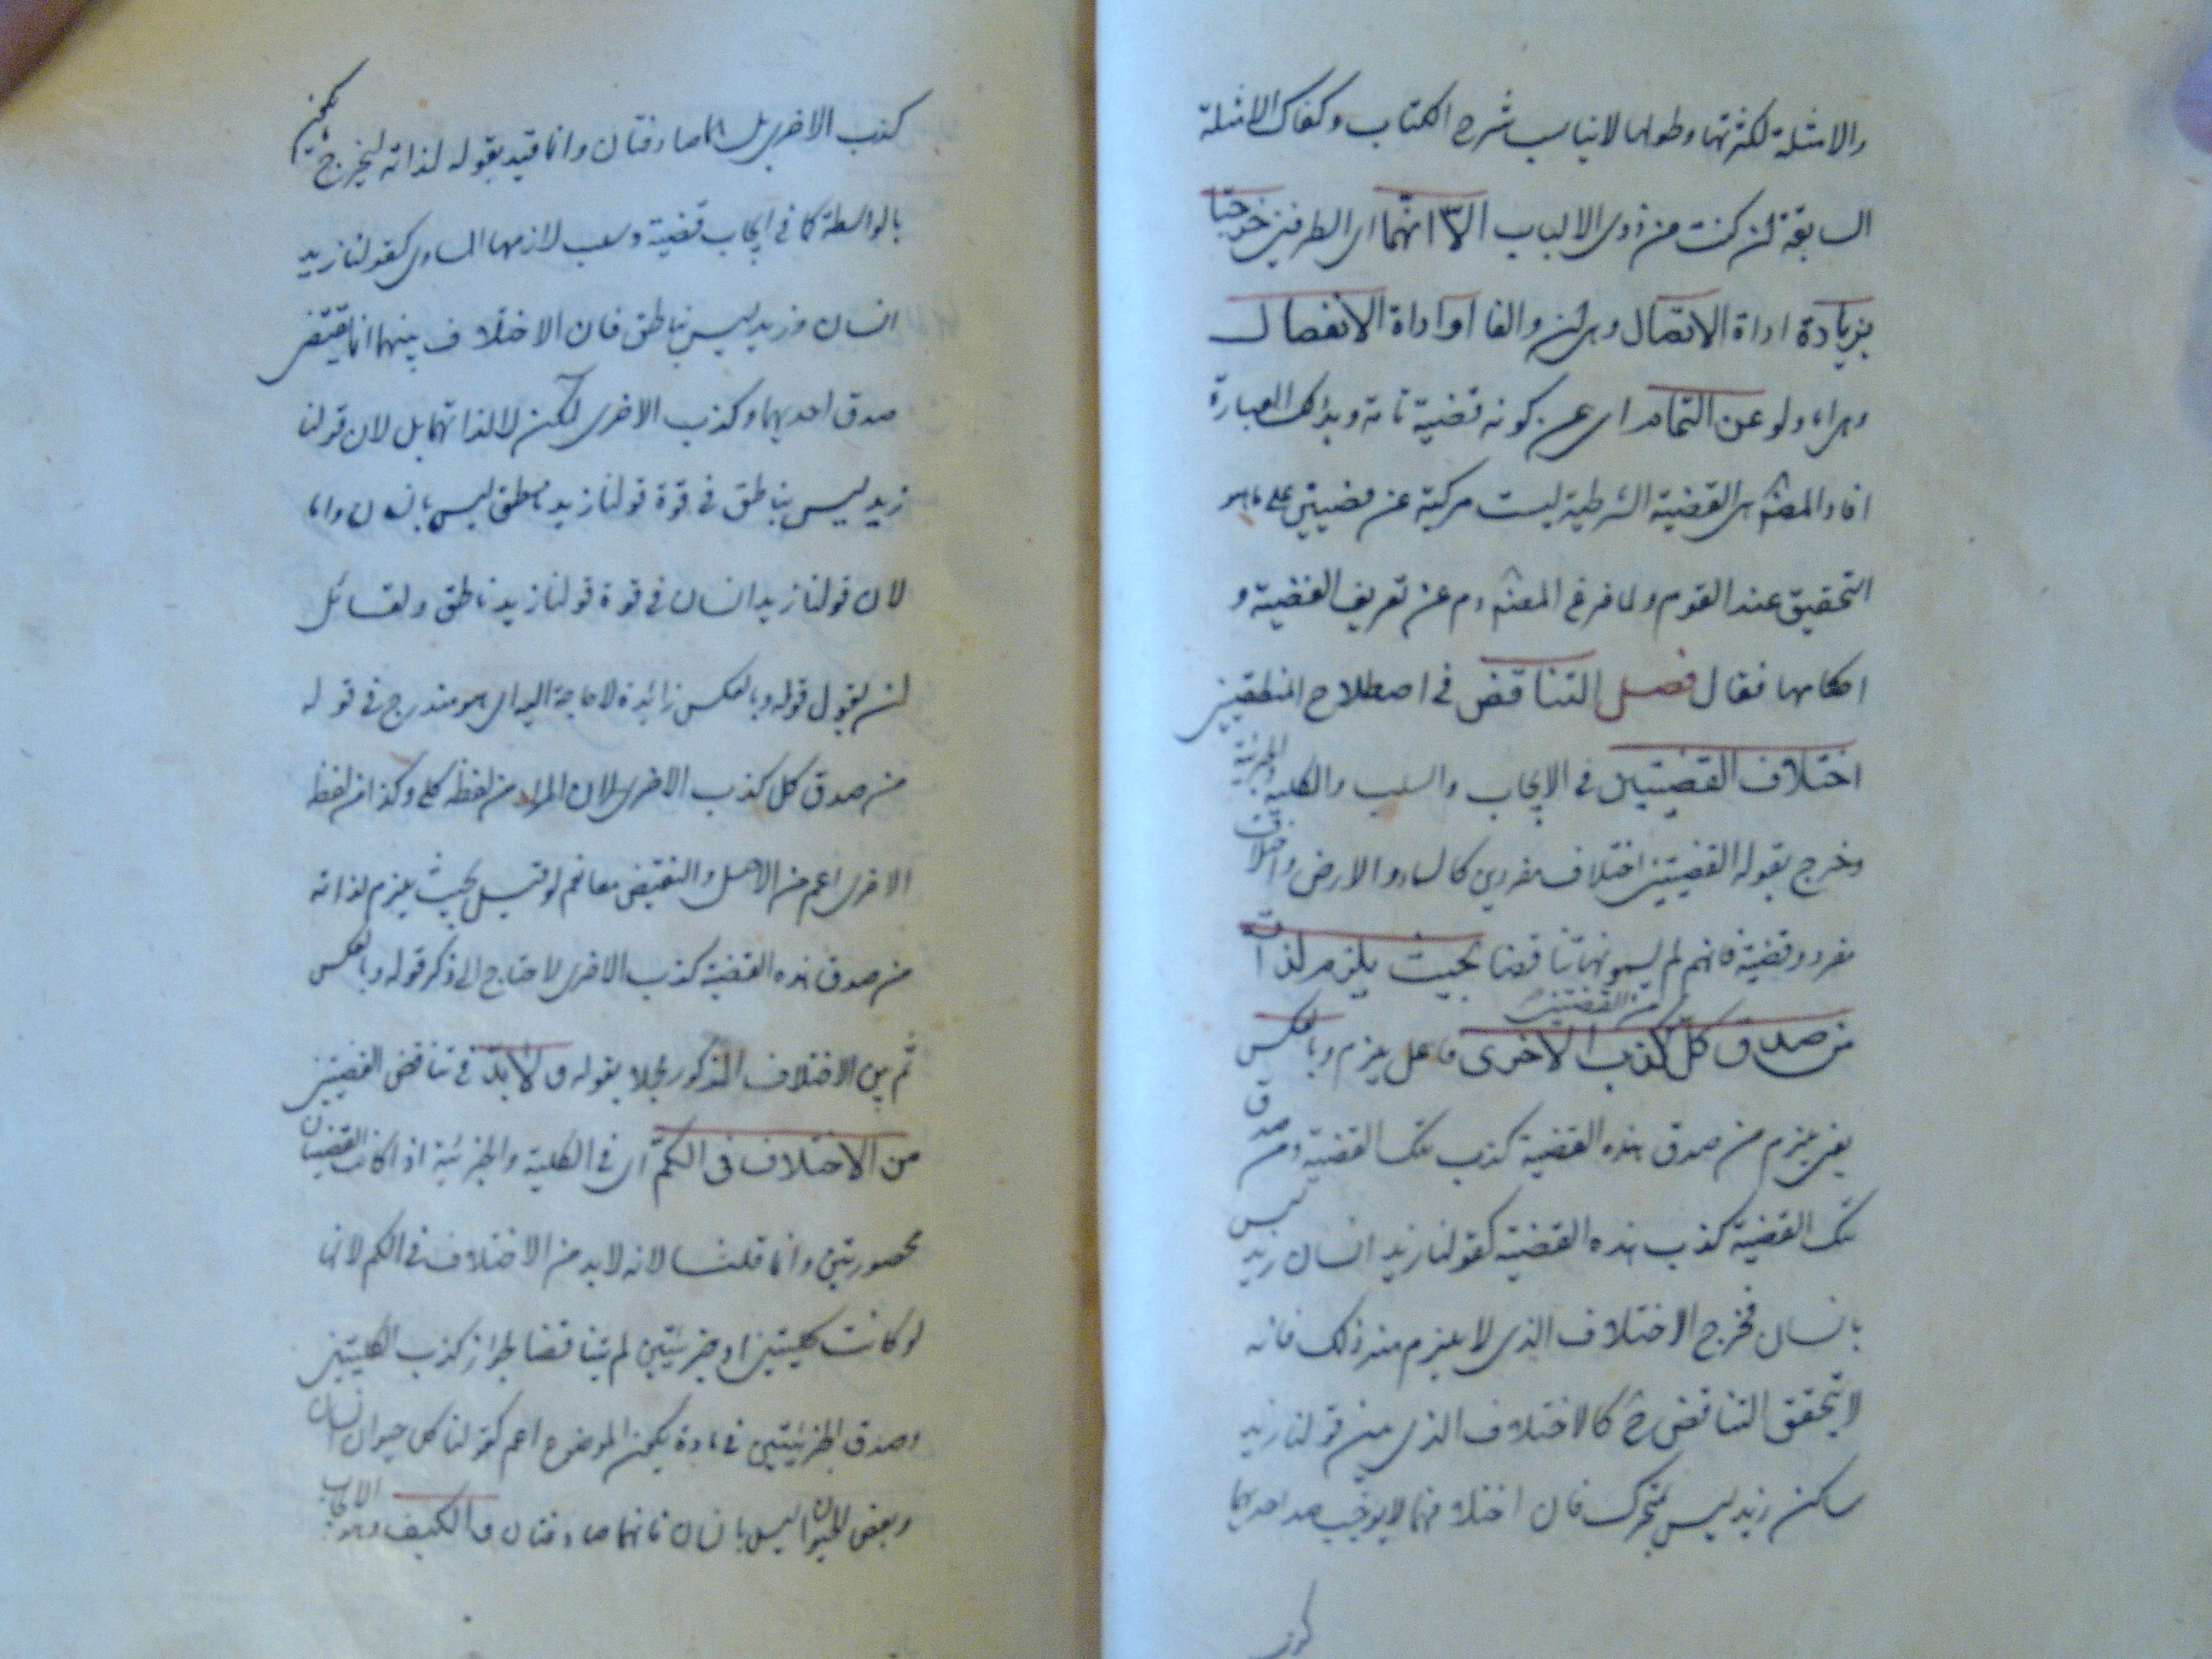 والامثلة لكثرتها وطولها لا نياسب شرح الكتاب وكفاك الامثلة
السابقة لن كنت من ذوى الالباب الا انهما اى الطرفين خرجتا
بزيادة اداة الاتصال وهى ان والفا او اداة الانفصال
وهى اما ولو عن التمام اى عن كونه قضية تامة وبذلك العبارة
افاد المصنف القضية الشرطية ليست مركبة عن قضيتين على ما هو
التحقيق عند القوم ولما فرغ المصنف رم عن تعريف القضية و
احكامها فقال فصل التناقض فى اصطلاح المنطقيين
اختلاف القضيتين فى الايجاب والسلب والكلية والجزئية
وخرج بقوله القضيتين اختلاف مفردين كالسماء والارض واختلاف
مفرد وقضية فانهم لم يسموهما تناقضا بحيث يلزم لذاته
من صدق كل من القضيتين كذب الاخرى فاعل يلزم وبالعكس
يعنى يلزم من صدق هذه القضية كذب تلك القضية ومن صدق
تلك القضية كذب هذه القضية كقولنا زيد انسان زيد ليس
بانسان فخرج الاختلاف الذى لا يلزم منه ذلك فانه
لا يتحقق التناقض ح كالاختلاف الذى بين قولنا زيد
ساكن زيد ليس بمتحرك فان اختلافهما لا يوجب صدق احديهما
كذب
كذب الاخرى بل هما صادقتان وانما قيد بقوله لذاته ليخرج
بالواسطة كما فى ايجاب قضية وسلب لازمها المساوى كقولنا زيد
انسان وزيد ليس بناطق فان الاختلاف بينهما انما يقتضى
صدق احديهما وكذب الاخرى لكن لا لذاتهما بل لان قولنا
زيد ليس بناطق فى قوة قولنا زيد ليس بانسان واما
لان قولنا زيد انسان فى قوة قولنا زيد ناطق ولقائل
ان يقول قوله وبالعكس زائدة لا حاجة اليه اى هو مندرج فى قوله
من صدق كل كذب الاخرى لان المراد من لفظ كل وكذا من لفظ
الاخرى اعم من الاصل والنقيض معا نعم لو قيل بحيث يلزم لذاته
من صدق هذه القضية كذب الاخرى لاحتاج الى ذكر قوله وبالعكس
ثم بين الاختلاف المذكور مجملا بقوله ولا بد فى تناقض القضيتين
من الاختلاف فى الكم اى فى الكلية والجزئية اذا كانت القضيتان
محصورتين وانما قلنا لانه لا بد من الاختلاف فى الكم لانها
لو كانت كليتين او جزئيتين لم يتناقضا لجواز كذب الكليتين
وصدق الجزئيتين فى مادة يكون الموضوع اعم كقولنا كل حيوان انسان
وبعض الحيوان ليس بانسان فانهما صادقتان والكيف وهو الايجاب